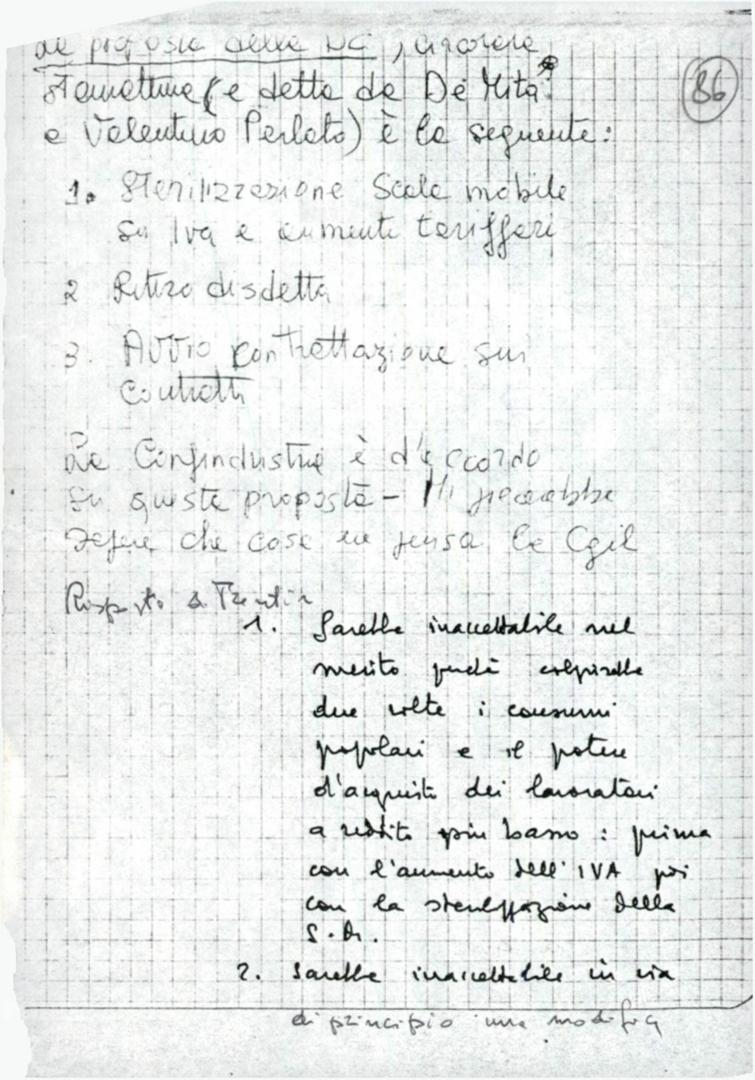 La proposta della DC, ancorata
stamattina (e detta da De Mita
a Valentino Parlato) è la seguente:
86
1. Sterilizzazione Scala mobile
su Iva e aumenti tariffari
2 Ritiro disdetta
3. Avvio contrattazione sui
contratti
La Confindustria è d'accordo
su queste proposte - Mi piacerebbe
sapere che cosa ne pensa la Cgil
Risposta a Trentin
1. Sarebbe inaccettabile nel
merito perché colpirebbe
due volte i consumi
popolari e il potere
d'acquisto dei lavoratori
a reddito più basso : prima
con l'aumento dell'IVA poi
con la sterilizzazione della
S.M.
2. Sarebbe inaccettabile in via
di principio una modifica